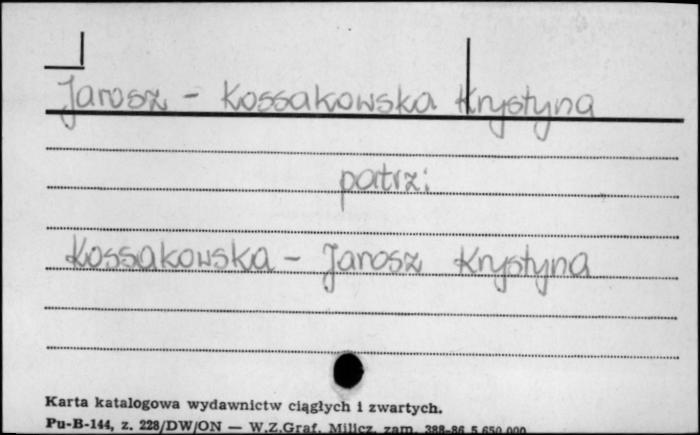 Jarosz - Kossakowska Krystyna
patrz:
Kossakowska - Jarosz Krystyna
Karta katalogowa wydawnictw ciągłych i zwartych.
Pu-B-144, z. 228/DW/ON — W.Z.Graf. Milicz, zam. 388-86 5.650.000